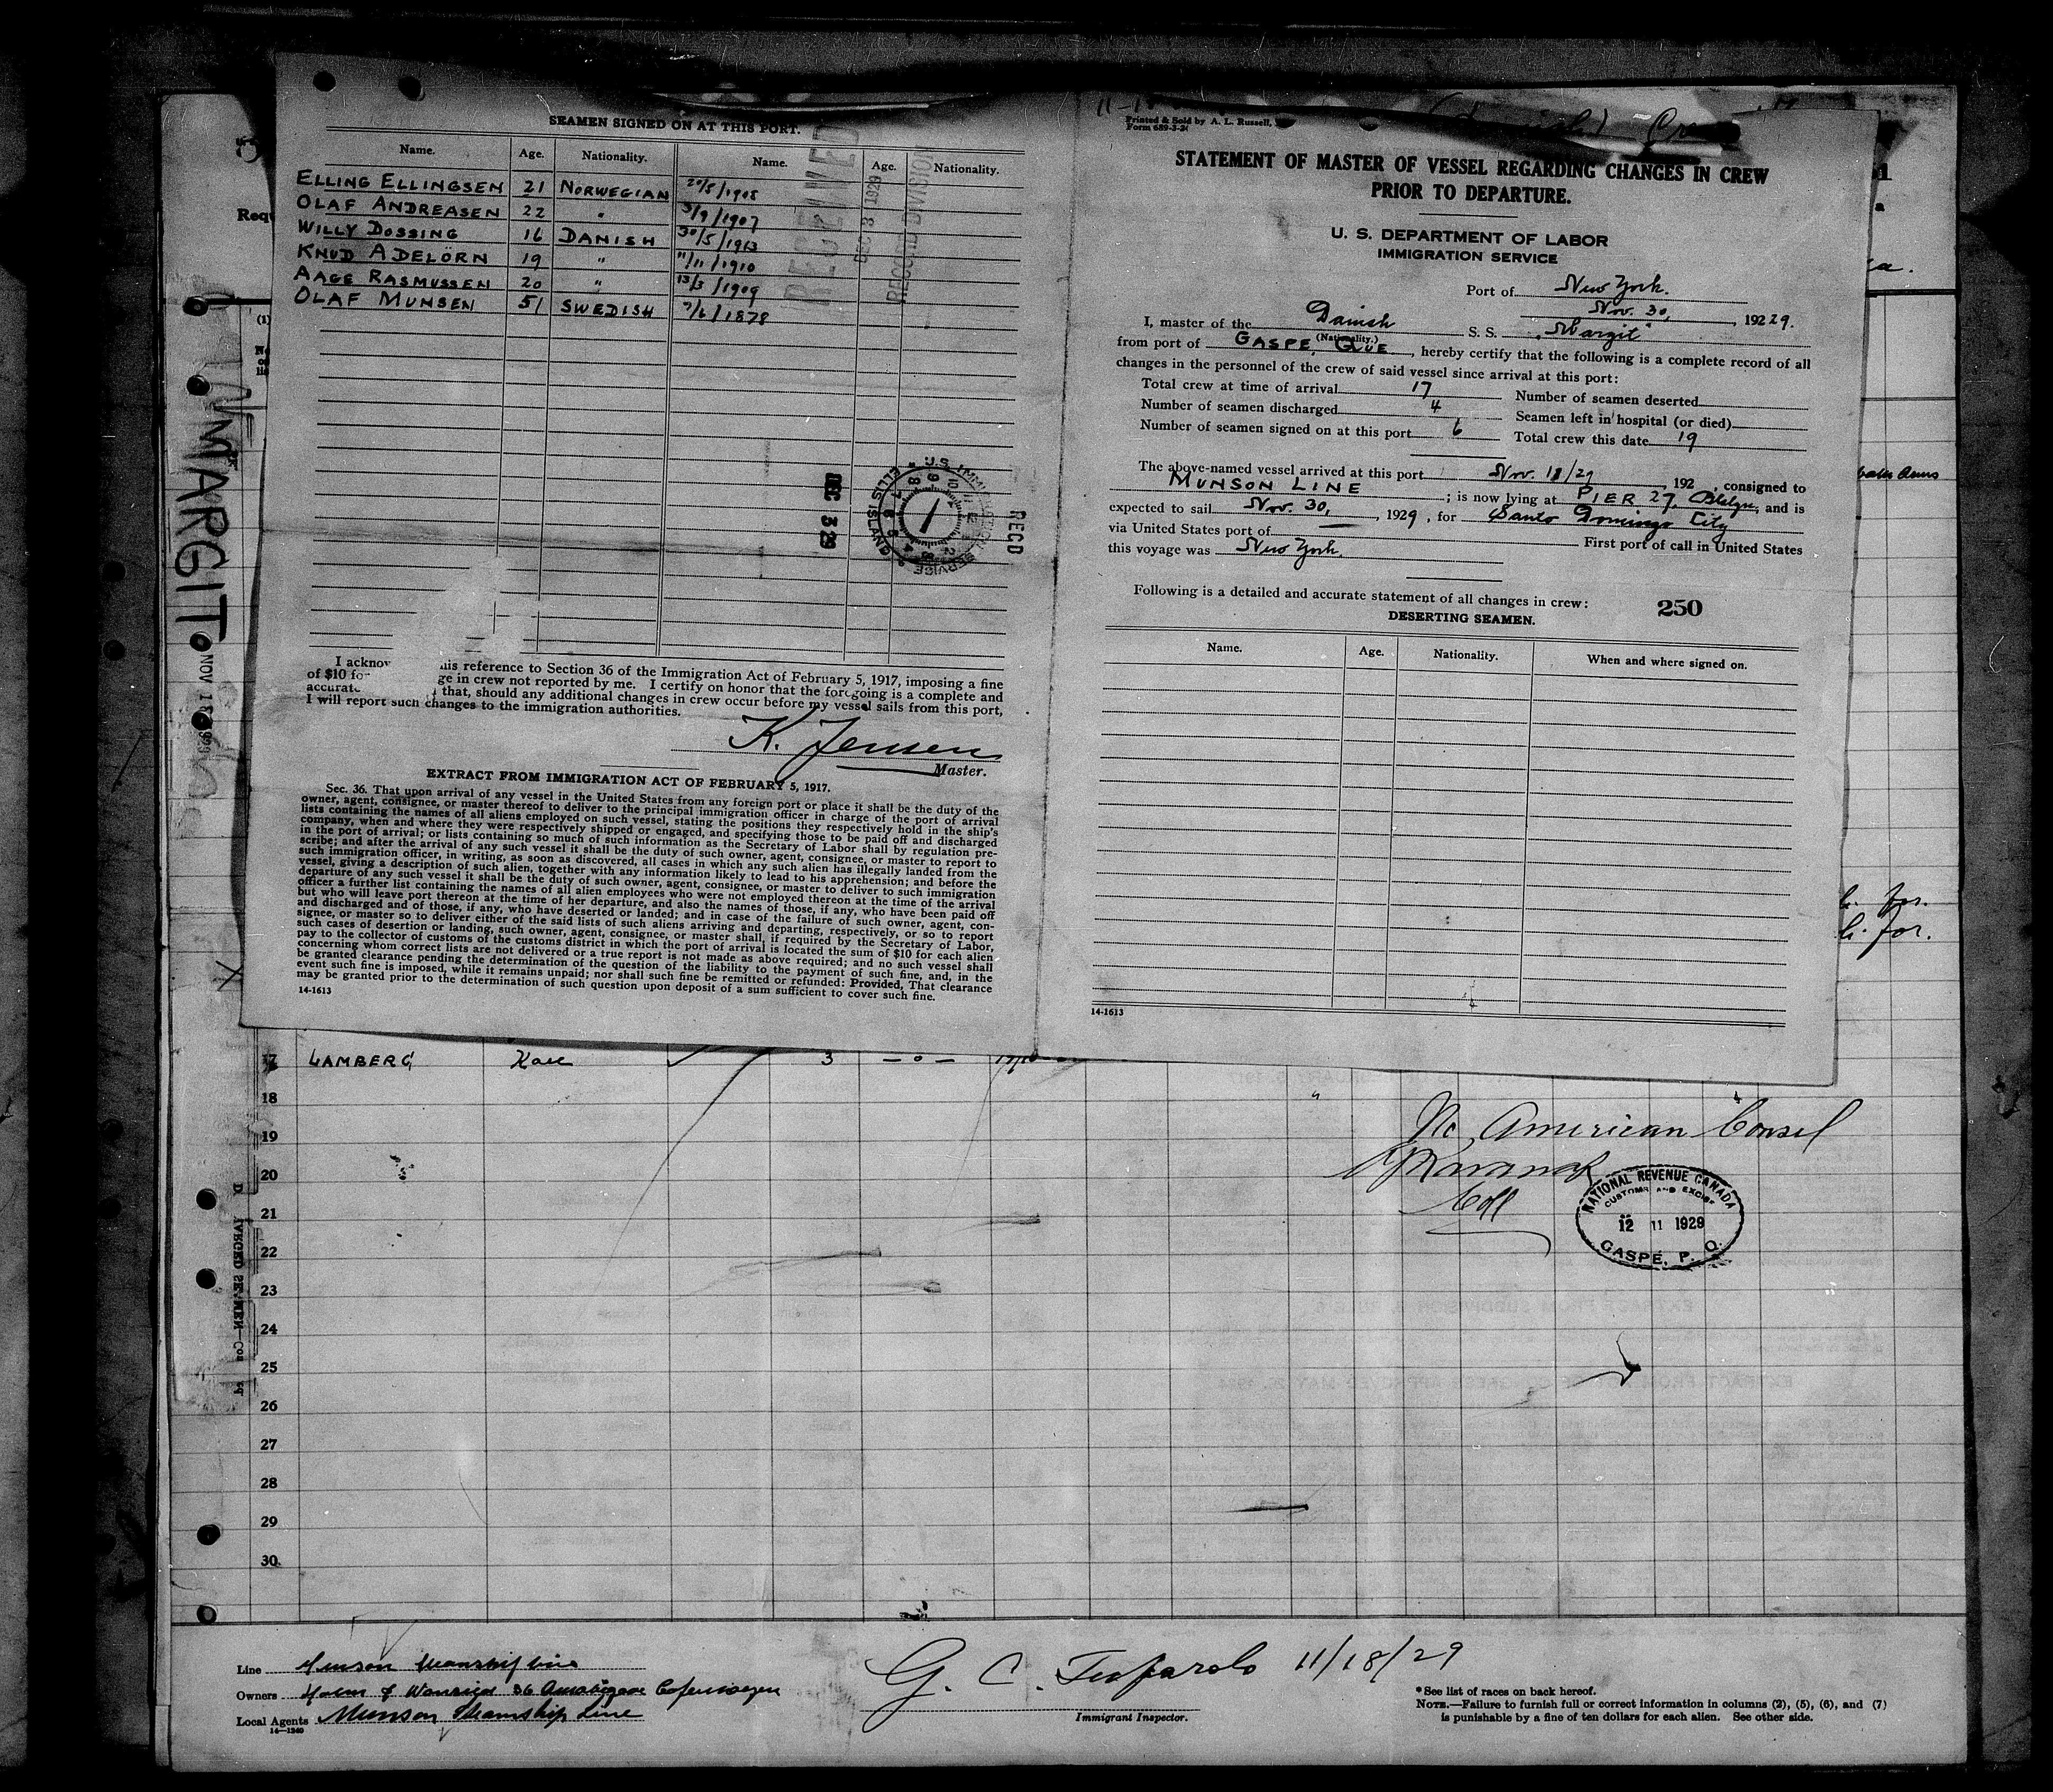 SEAMEN SIGNED ON AT THIS PORT.
Name. Age. Nationality. Name. Age. Nationality.
ELLING ELLINGSEN 21 NORWEGIAN 20/5/1908
OLAF ANDREASEN 22 " 3/9/1907
WILLY DOSSING 16 DANISH 30/5/1913
KNUD ADELÖRN 19 " 11/11/1910
AAGE RASMUSSEN 20 " 13/3/1909
OLAF MUNSEN 51 SWEDISH 7/6/1878
RECEIVED
DEC 3 1929
RECORD DIVISION
DEC 3 29
U.S. IMMIGRATION SERVICE ELLIS ISLAND
RECD
I acknov his reference to Section 36 of the Immigration Act of February 5, 1917, imposing a fine
of $10 fo ge in crew not reported by me. I certify on honor that the foregoing is a complete and
accurate d that, should any additional changes in crew occur before my vessel sails from this port,
I will report such changes to the immigration authorities.
K. Jensen
Master.
EXTRACT FROM IMMIGRATION ACT OF FEBRUARY 5, 1917.
Sec. 36. That upon arrival of any vessel in the United States from any foreign port or place it shall be the duty of the
owner, agent, consignee, or master thereof to deliver to the principal immigration officer in charge of the port of arrival
lists containing the names of all aliens employed on such vessel, stating the positions they respectively hold in the ship's
company, when and where they were respectively shipped or engaged, and specifying those to be paid off and discharged
in the port of arrival; or lists containing so much of such information as the Secretary of Labor shall by regulation pre-
scribe; and after the arrival of any such vessel it shall be the duty of such owner, agent, consignee, or master to report to
such immigration officer, in writing, as soon as discovered, all cases in which any such alien has illegally landed from the
vessel, giving a description of such alien, together with any information likely to lead to his apprehension; and before the
departure of any such vessel it shall be the duty of such owner, agent, consignee, or master to deliver to such immigration
officer a further list containing the names of all alien employees who were not employed thereon at the time of the arrival
but who will leave port thereon at the time of her departure, and also the names of those, if any, who have been paid off
and discharged and of those, if any, who have deserted or landed; and in case of the failure of such owner, agent, con-
signee, or master so to deliver either of the said lists of such aliens arriving and departing, respectively, or so to report
such cases of desertion or landing, such owner, agent, consignee, or master shall, if required by the Secretary of Labor,
pay to the collector of customs of the customs district in which the port of arrival is located the sum of $10 for each alien
concerning whom correct lists are not delivered or a true report is not made as above required; and no such vessel shall
be granted clearance pending the determination of the question of the liability to the payment of such fine, and, in the
event such fine is imposed, while it remains unpaid; nor shall such fine be remitted or refunded: Provided, That clearance
may be granted prior to the determination of such question upon deposit of a sum sufficient to cover such fine.
14-1613
Printed & Sold by A. L. Russell,
Form 689-3-24
STATEMENT OF MASTER OF VESSEL REGARDING CHANGES IN CREW
PRIOR TO DEPARTURE.
U. S. DEPARTMENT OF LABOR
IMMIGRATION SERVICE
Port of New York.
Nov. 30, 19229.
I, master of the Danish S. S. "Margit"
(Nationality.)
from port of GASPE, QUE, hereby certify that the following is a complete record of all
changes in the personnel of the crew of said vessel since arrival at this port:
Total crew at time of arrival 17 Number of seamen deserted
Number of seamen discharged 4 Seamen left in hospital (or died)
Number of seamen signed on at this port 6 Total crew this date 19
The above-named vessel arrived at this port Nov. 18/29, 192 , consigned to
MUNSON LINE ; is now lying at PIER 27, Bklyn, and is
expected to sail Nov. 30, 1929, for Santo Domingo City
via United States port of — First port of call in United States
this voyage was New York.
Following is a detailed and accurate statement of all changes in crew:
250
DESERTING SEAMEN.
Name. Age. Nationality. When and where signed on.
14-1613
MARGIT
17 LAMBERG Kaee 3 —o—
18
19
20
21
22
23
24
25
26
27
28
29
30
No American Consul
Coll
NATIONAL REVENUE CANADA
CUSTOMS AND EXCISE
12 11 1929
GASPÉ, P. Q.
Line Munson Steamship Line
Owners
Local Agents Munson Steamship Line
14-1240
G. C. 11/18/29
Immigrant Inspector.
* See list of races on back hereof.
NOTE.—Failure to furnish full or correct information in columns (2), (5), (6), and (7)
is punishable by a fine of ten dollars for each alien. See other side.